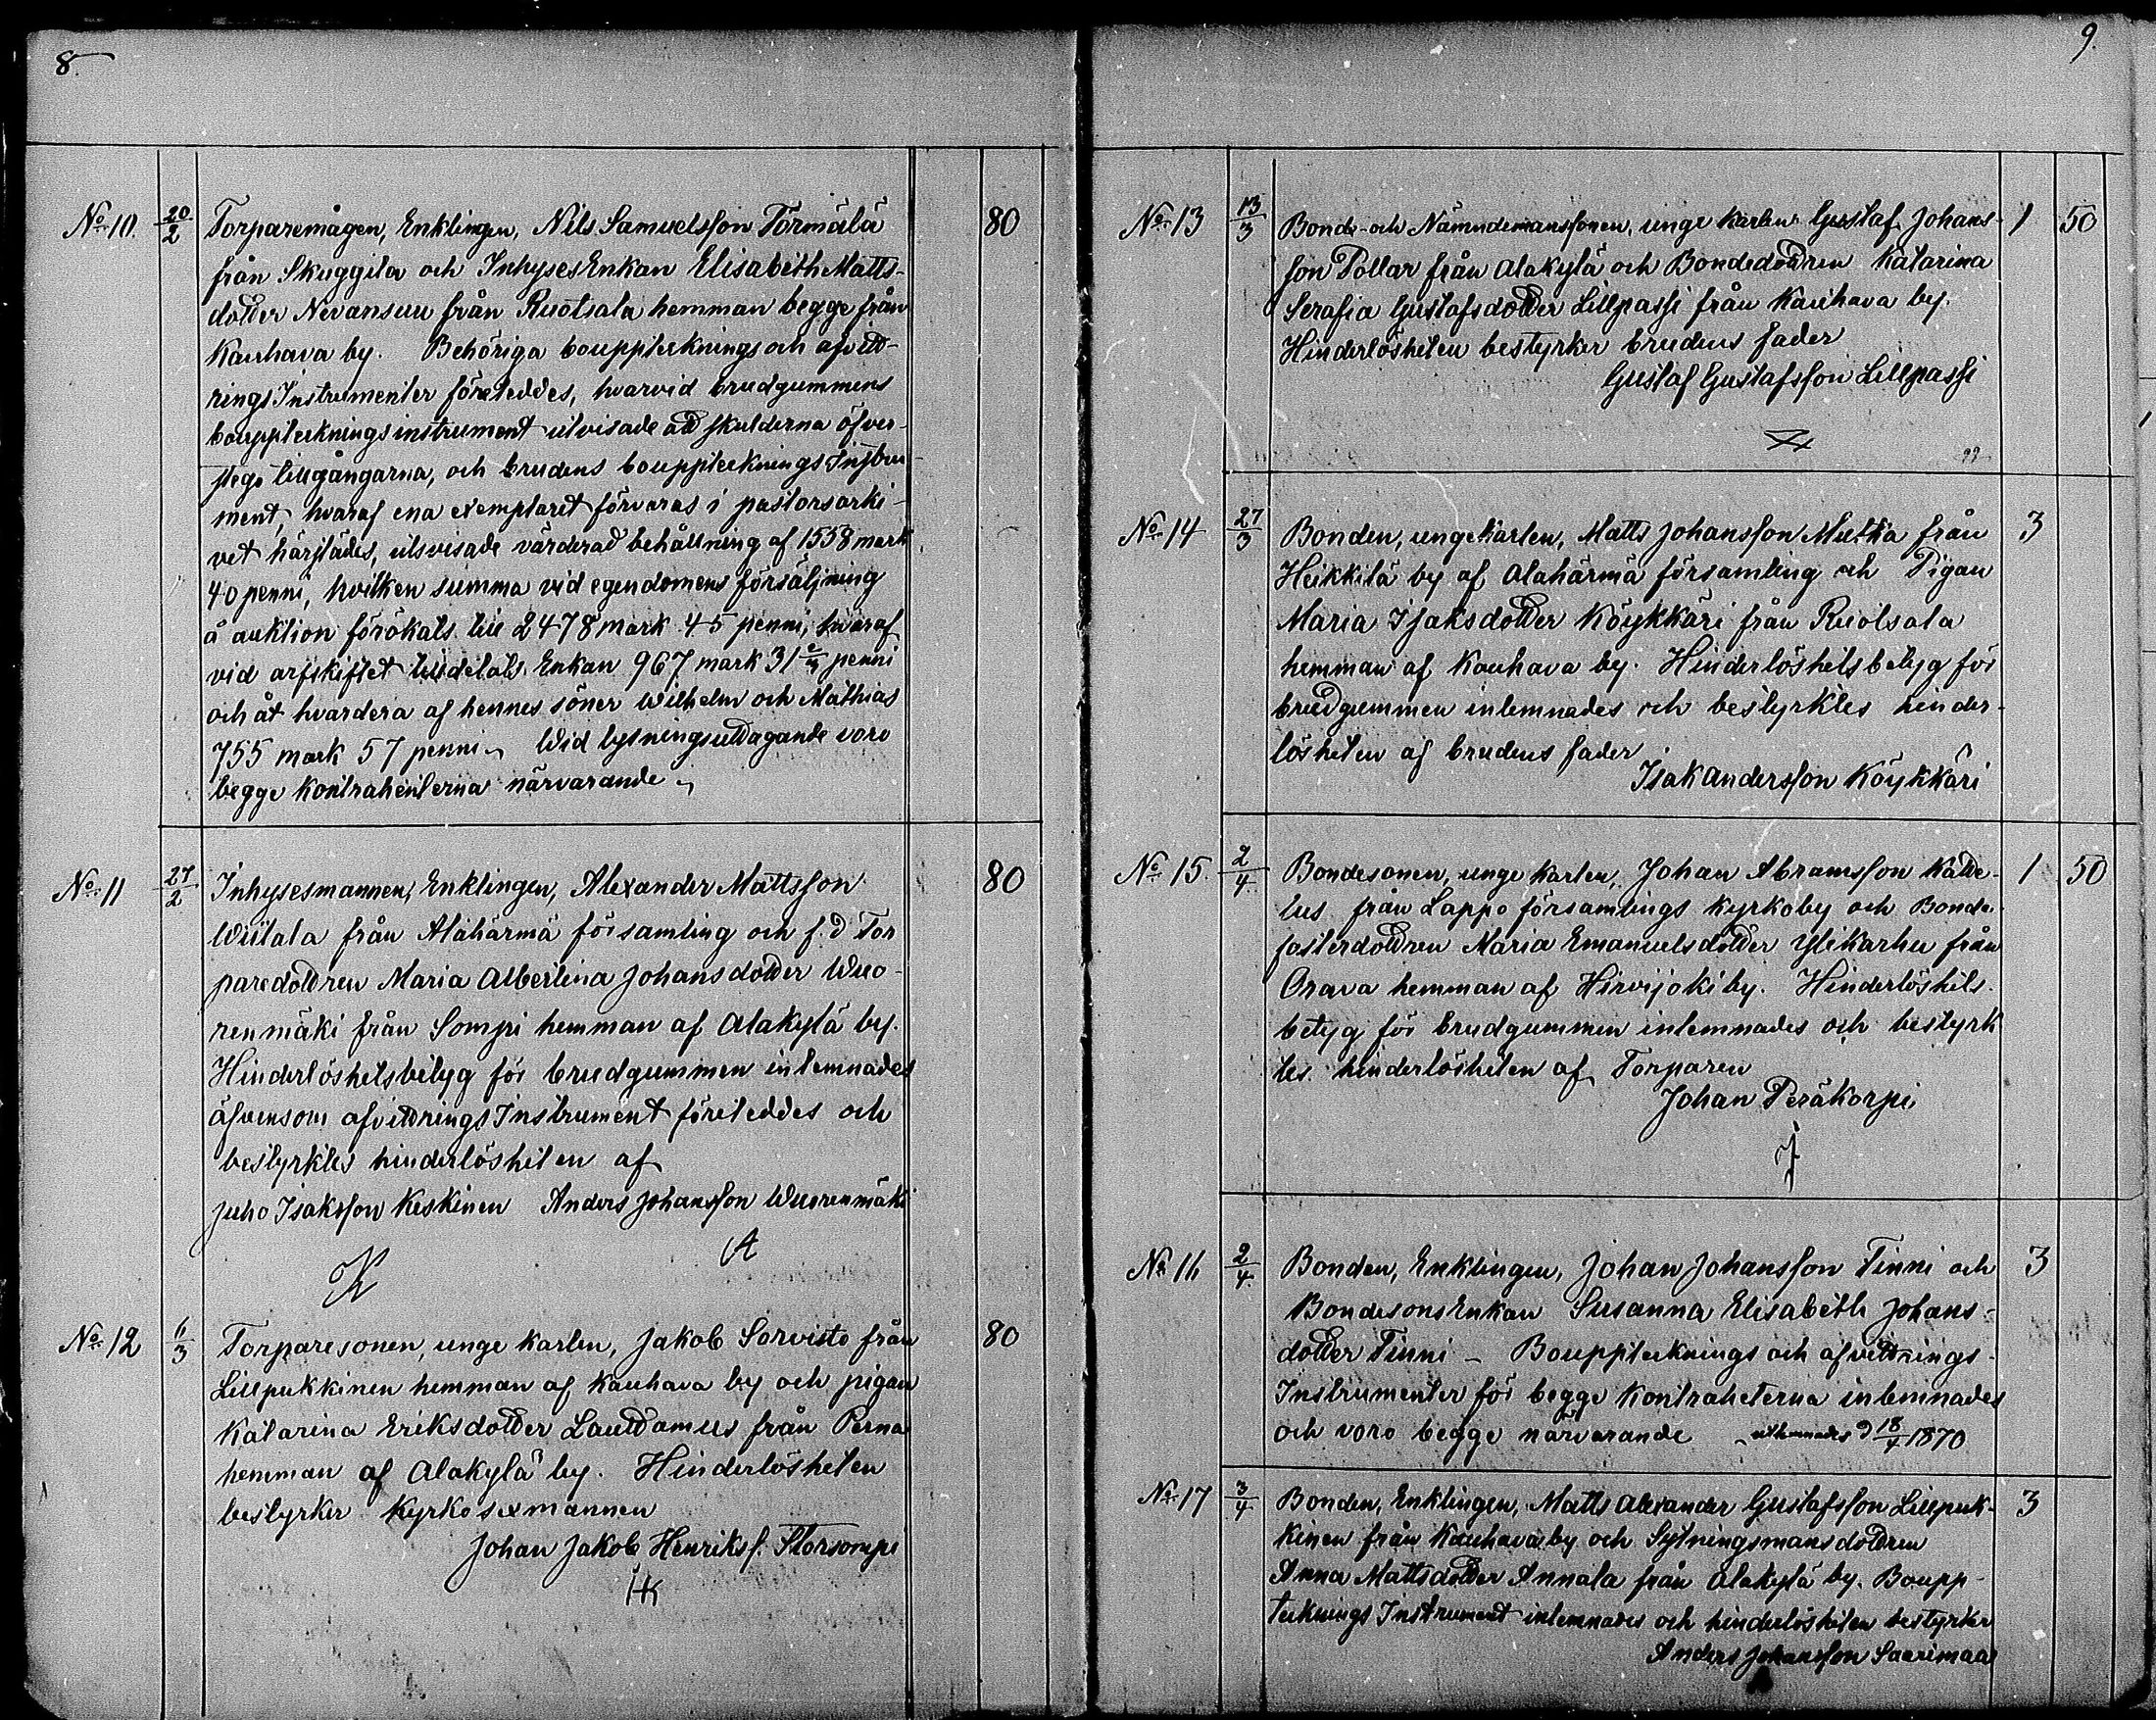 8.
No 10. 20/2 Torparemågen, Enklingen, Nils Samuelsson Törmälä 80
från Skuggila och Inhyses Enkan Elisabeth Matts-
dotter Nevansuu från Ruotsala hemman begge från
Kauhava by. Behöriga bouppteknings och afvitt-
rings Instrumenter företeddes, hvarvid brudgummens
boupptekningsinstrument utvisade att skulderna öfver-
stego tillgångarna, och brudens bouppteknings Instru-
ment, hvaraf ena exemplaret förvaras i pastorsarki-
vet härstädes, utvisade värderad behållning af 1558 mark
40 penni, hvilken summa vid egendomens försäljning
å auktion förökats till 2478 mark 45 penni, hvaraf
vid arfskiftet tilldelats Enkan 967 mark 31 2/3 penni
och åt hvardera af hennes söner Wilhelm och Mathias
755 mark 57 penni. Wid lysningsuttagande voro
begge kontrahenterna närvarande.
No 11 27/2 Inhysesmannen, Enklingen, Alexander Mattsson 80
Wiitala från Alahärmä församling och f.d Tor
paredottren Maria Albertina Johansdotter Wuo-
renmäki från Sompi hemman af Alakylä by.
Hinderlöshetsbetyg för brudgummen inlemnades
äfvensom afvittrings Instrument företeddes och
bestyrktes hinderlösheten af
Juho Isaksson Keskinen Anders Johansson Wuorenmäki
K A
No 12 6/3 Torparesonen, unge karlen, Jakob Sorvisto från 80
Lillpukkinen hemman af Kauhava by och pigan
Katarina Eriksdotter Lauttamus från Perna
hemman af Alakylä by. Hinderlösheten
bestyrker Kyrkosexmannen
Johan Jakob Henrikss. Storsompi
9.
No 13 13/3 Bonde- och Nämndemanssonen, unge karlen Gustaf Johans- 1 50
son Pollar från Alakylä och Bondedottren Katarina
Serafia Gustafsdotter Lillpassi från Kauhava by.
Hinderlösheten bestyrker brudens fader
Gustaf Gustafsson Lillpassi
No 14 27/3 Bonden, ungekarlen, Matts Johansson Mutka från 3
Heikkilä by af Alahärmä församling och Pigan
Maria Isaksdotter Köykkäri från Ruotsala
hemman af Kauhava by. Hinderlöshetsbetyg för
brudgummen inlemnades och bestyrktes hinder-
lösheten af brudens fader
Isak Andersson Köykkäri
No 15. 2/4 Bondesonen, unge karlen, Johan Abramsson Katte- 1 50
lus från Lappo församlings kyrkoby och Bonde
fosterdottren Maria Emanuelsdotter Ylikarhu från
Orava hemman af Hirvijoki by. Hinderlöshets-
betyg för brudgummen inlemnades och bestyrk
tes hinderlösheten af Torparen
Johan Peräkorpi
No 16 2/4 Bonden, Enklingen, Johan Johansson Finni och 3
Bondesons Enkan Susanna Elisabeth Johans-
dotter Finni - Bouppteknings och afvittrings-
Instrumenter för begge kontraheterna inlemnades
och voro begge närvarande utlemnades d 18/4 1870
No 17 3/4 Bonden, Enklingen, Matts Alexander Gustafsson Lillpuk- 3
kinen från Kauhava by och Sytningsmansdottren
Anna Mattsdotter Annala från Alakylä by. Boupp-
teknings Instrument inlemnades och hinderlösheten bestyrker
Anders Johansson Saarimaa